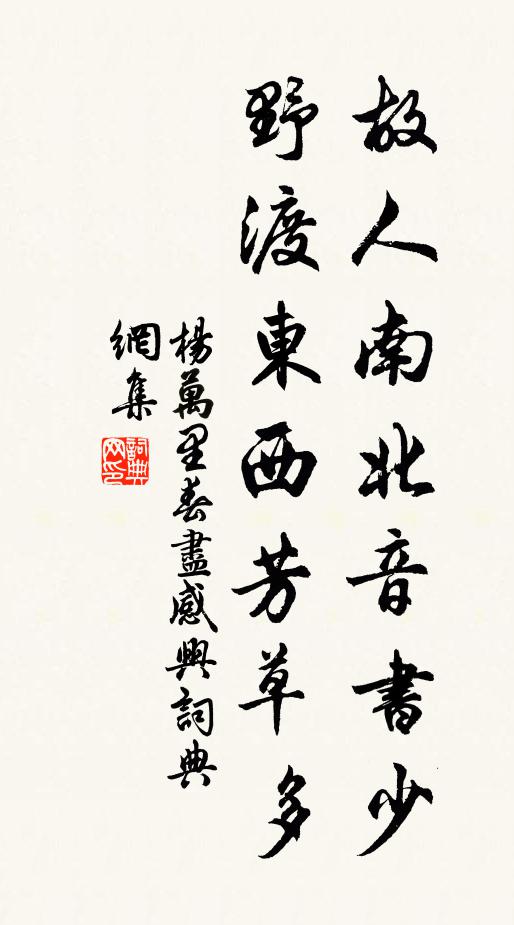 故人南北音書少
野渡東西芳草多
楊萬里春盡感興詞典
網集
詞典
网印